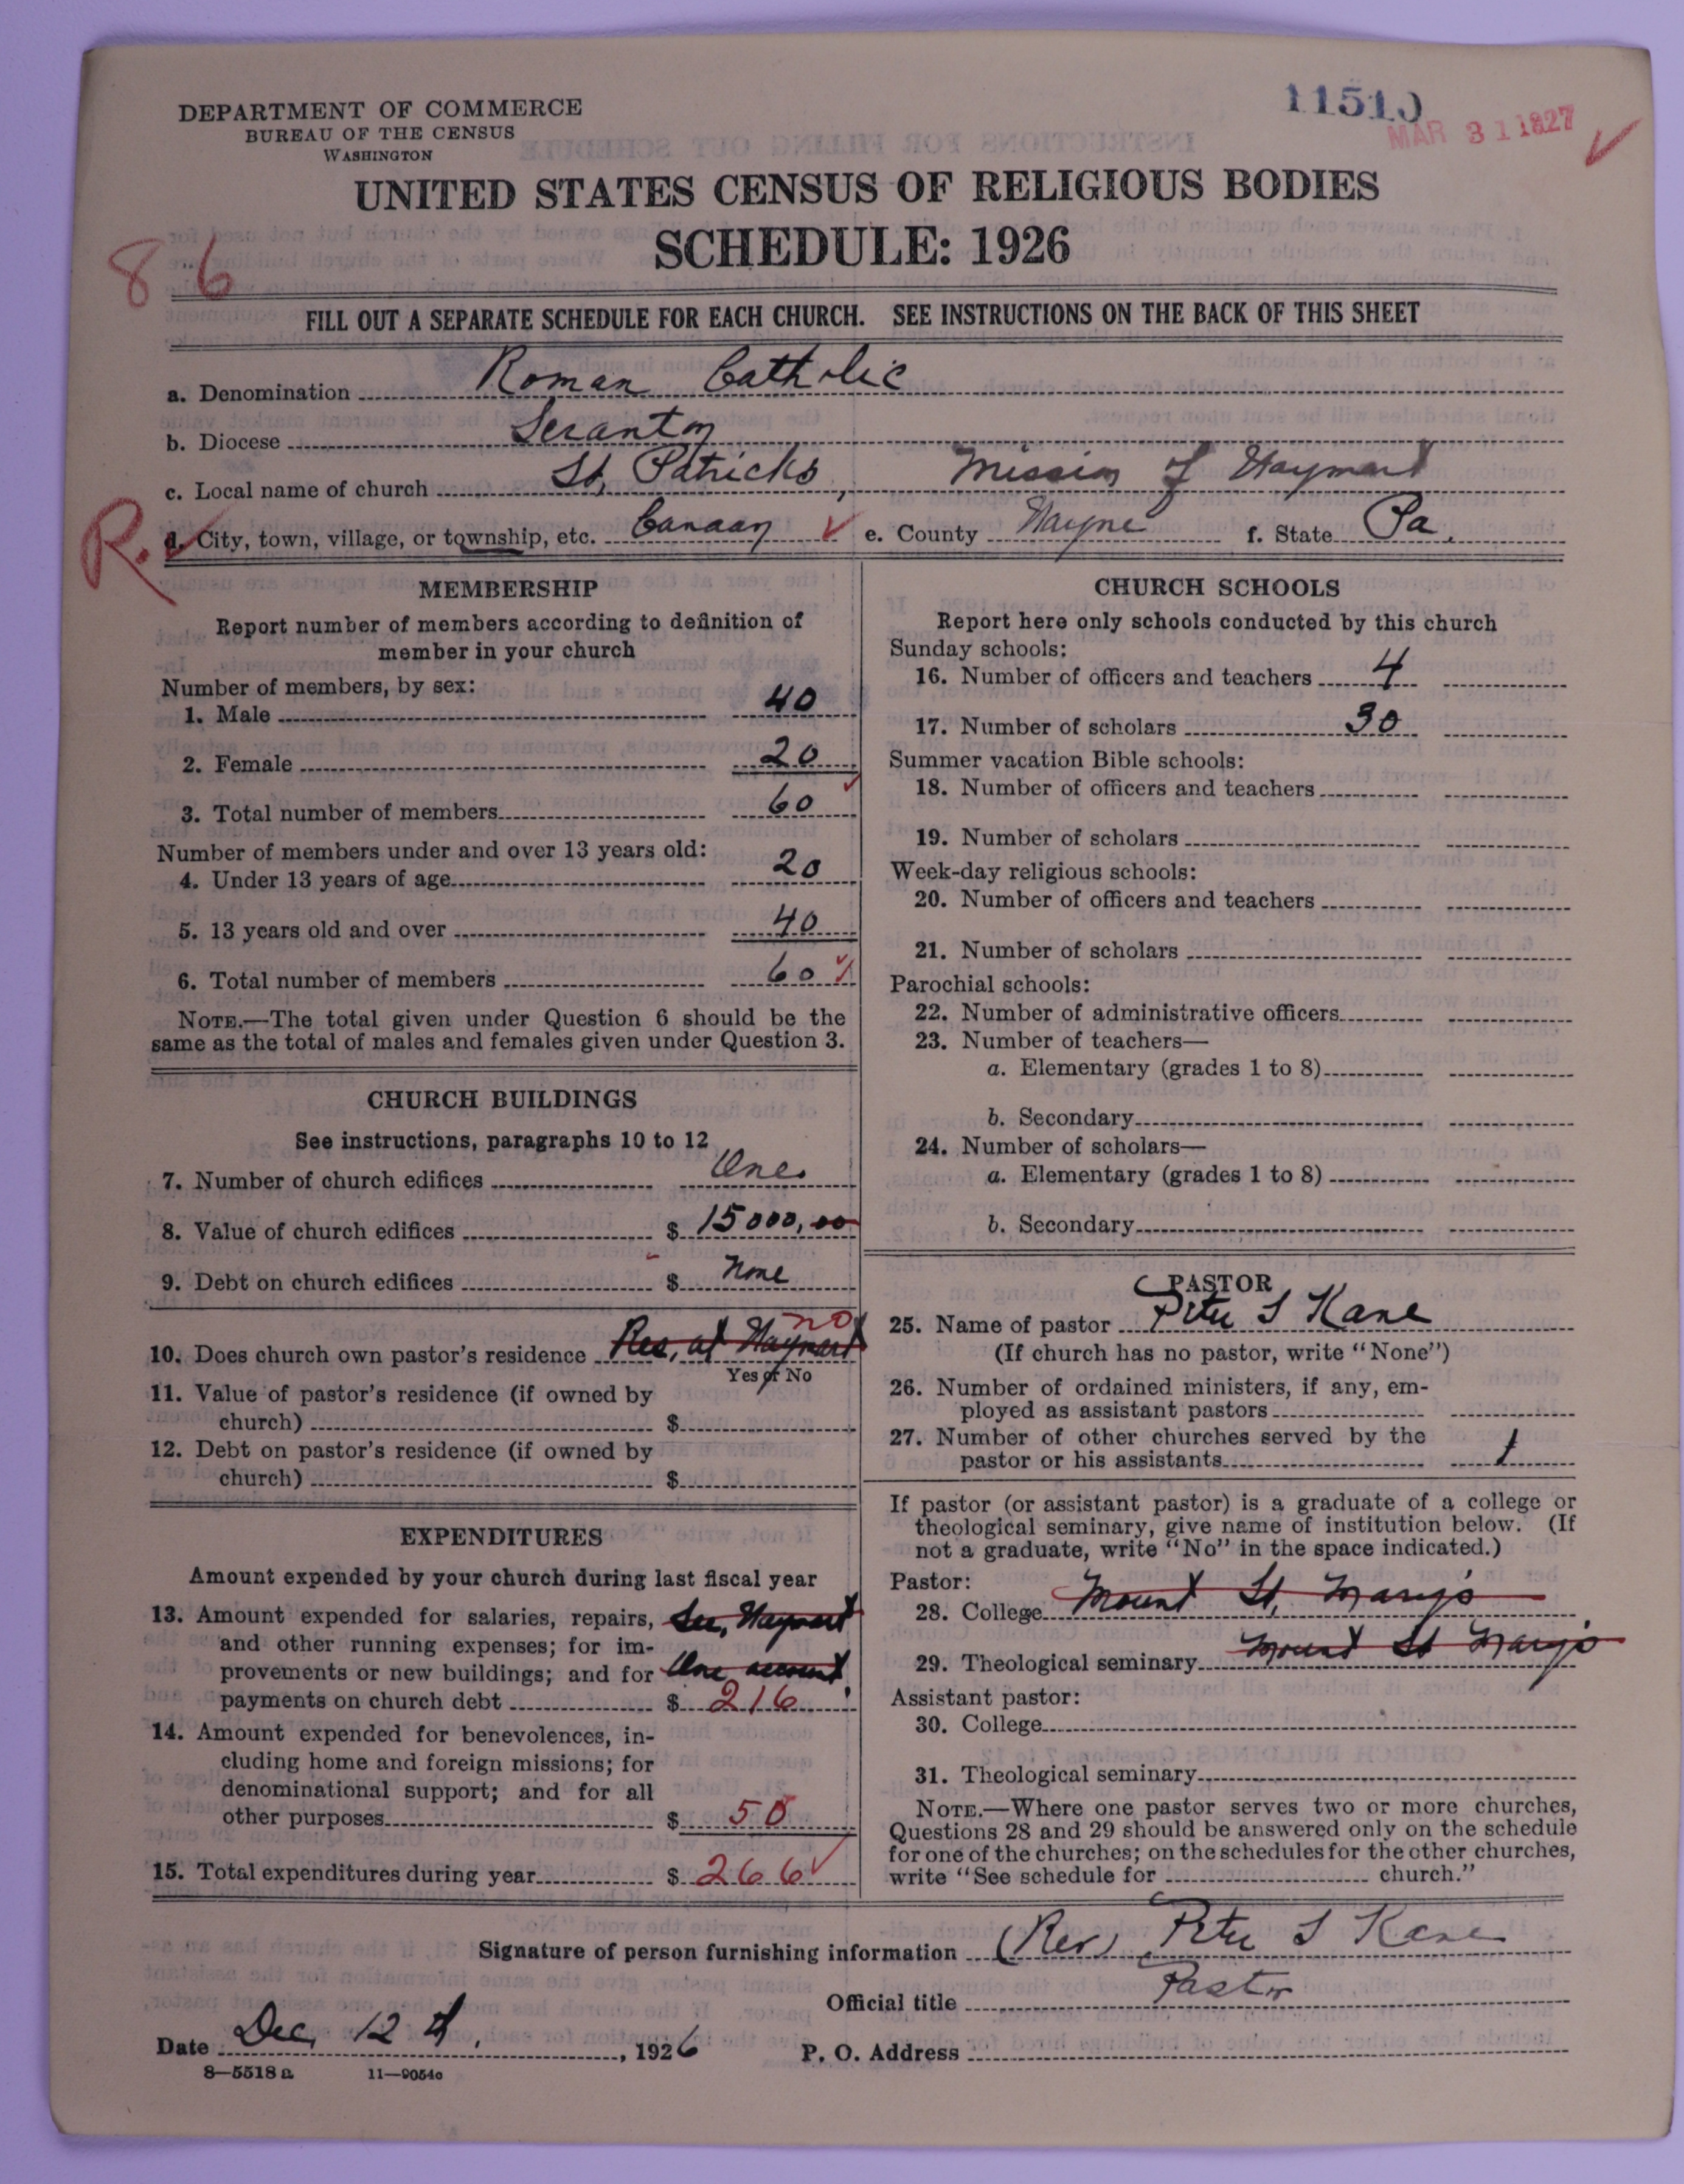 DEPARTMENT OF COMMERCE
BUREAU OF THE CENSUS
WASHINGTON
11510
MAR 31 1827
UNITED STATES CENSUS OF RELIGIOUS BODIES
SCHEDULE: 1926
8 6
FILL OUT A SEPARATE SCHEDULE FOR EACH CHURCH. SEE INSTRUCTIONS ON THE BACK OF THIS SHEET
a. Denomination Roman Catholic
b. Diocese Scranton
c. Local name of church St. Patricks, Mission of Waymart
R. d. City, town, village, or township, etc. Canaan e. County Wayne f. State Pa.
MEMBERSHIP
Report number of members according to definition of
member in your church
Number of members, by sex:
1. Male 40
2. Female 20
3. Total number of members 60
Number of members under and over 13 years old:
4. Under 13 years of age 20
5. 13 years old and over 40
6. Total number of members 60
NOTE.—The total given under Question 6 should be the
same as the total of males and females given under Question 3.
CHURCH BUILDINGS
See instructions, paragraphs 10 to 12
7. Number of church edifices One
8. Value of church edifices $ 15000,00
9. Debt on church edifices $ none
no
10. Does church own pastor's residence Res, at Waymart
Yes or No
11. Value of pastor's residence (if owned by
church) $
12. Debt on pastor's residence (if owned by
church) $
EXPENDITURES
Amount expended by your church during last fiscal year
13. Amount expended for salaries, repairs, See, Waymart
and other running expenses; for im-
provements or new buildings; and for One account
payments on church debt $ 216
14. Amount expended for benevolences, in-
cluding home and foreign missions; for
denominational support; and for all
other purposes $ 50
15. Total expenditures during year $ 266
CHURCH SCHOOLS
Report here only schools conducted by this church
Sunday schools:
16. Number of officers and teachers 4
17. Number of scholars 30
Summer vacation Bible schools:
18. Number of officers and teachers
19. Number of scholars
Week-day religious schools:
20. Number of officers and teachers
21. Number of scholars
Parochial schools:
22. Number of administrative officers
23. Number of teachers—
a. Elementary (grades 1 to 8)
b. Secondary
24. Number of scholars—
a. Elementary (grades 1 to 8)
b. Secondary
PASTOR
25. Name of pastor Peter S Kane
(If church has no pastor, write "None")
26. Number of ordained ministers, if any, em-
ployed as assistant pastors
27. Number of other churches served by the
pastor or his assistants 1
If pastor (or assistant pastor) is a graduate of a college or
theological seminary, give name of institution below. (If
not a graduate, write "No" in the space indicated.)
Pastor:
28. College Mount St, Mary's
29. Theological seminary Mount St Mary's
Assistant pastor:
30. College
31. Theological seminary
NOTE.—Where one pastor serves two or more churches,
Questions 28 and 29 should be answered only on the schedule
for one of the churches; on the schedules for the other churches,
write "See schedule for church."
Signature of person furnishing information (Rev) Peter S Kane
Official title Pastor
Date Dec, 12 th, 1926 P. O. Address
8—5518 a 11—9054c